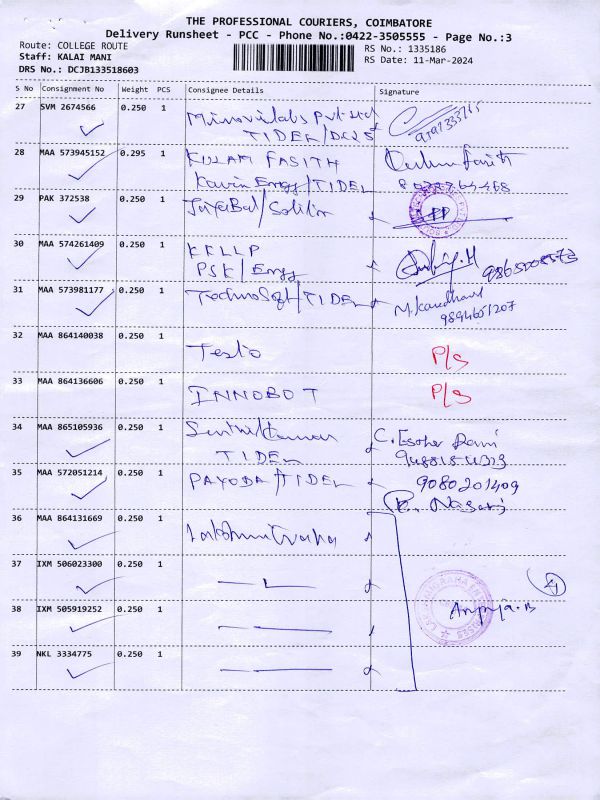 THE PROFESSIONAL COURIERS, COIMBATORE
Delivery Runsheet - PCC - Phone No.:0422-3505555 - Page No.:3
Route: COLLEGE ROUTE
RS No.: 1335186
Staff: KALAI MANI
RS Date: 11-Mar-2024
DRS No.: DCJB133518603
S No Consignment No Weight PCS Consignee Details Signature
27 SVM 2674566 0.250 1
TIDEL/DC25
28 MAA 573945152 0.295 1 KULAM FASITH
Kavin Engg/TIDEL
29 PAK 372538 0.250 1
30 MAA 574261409 0.250 1 KKLLP
PSK/Engg
31 MAA 573981177 0.250 1 TechnoSoft/TIDEL
9894651207
32 MAA 864140038 0.250 1 Testo P/S
33 MAA 864136606 0.250 1 INNOBOT P/S
34 MAA 865105936 0.250 1 Senthilkumar C. Esther Rani
TIDEL
35 MAA 572051214 0.250 1 PAYODA/TIDEL 9080201409
36 MAA 864131669 0.250 1
37 IXM 506023300 0.250 1
38 IXM 505919252 0.250 1
39 NKL 3334775 0.250 1